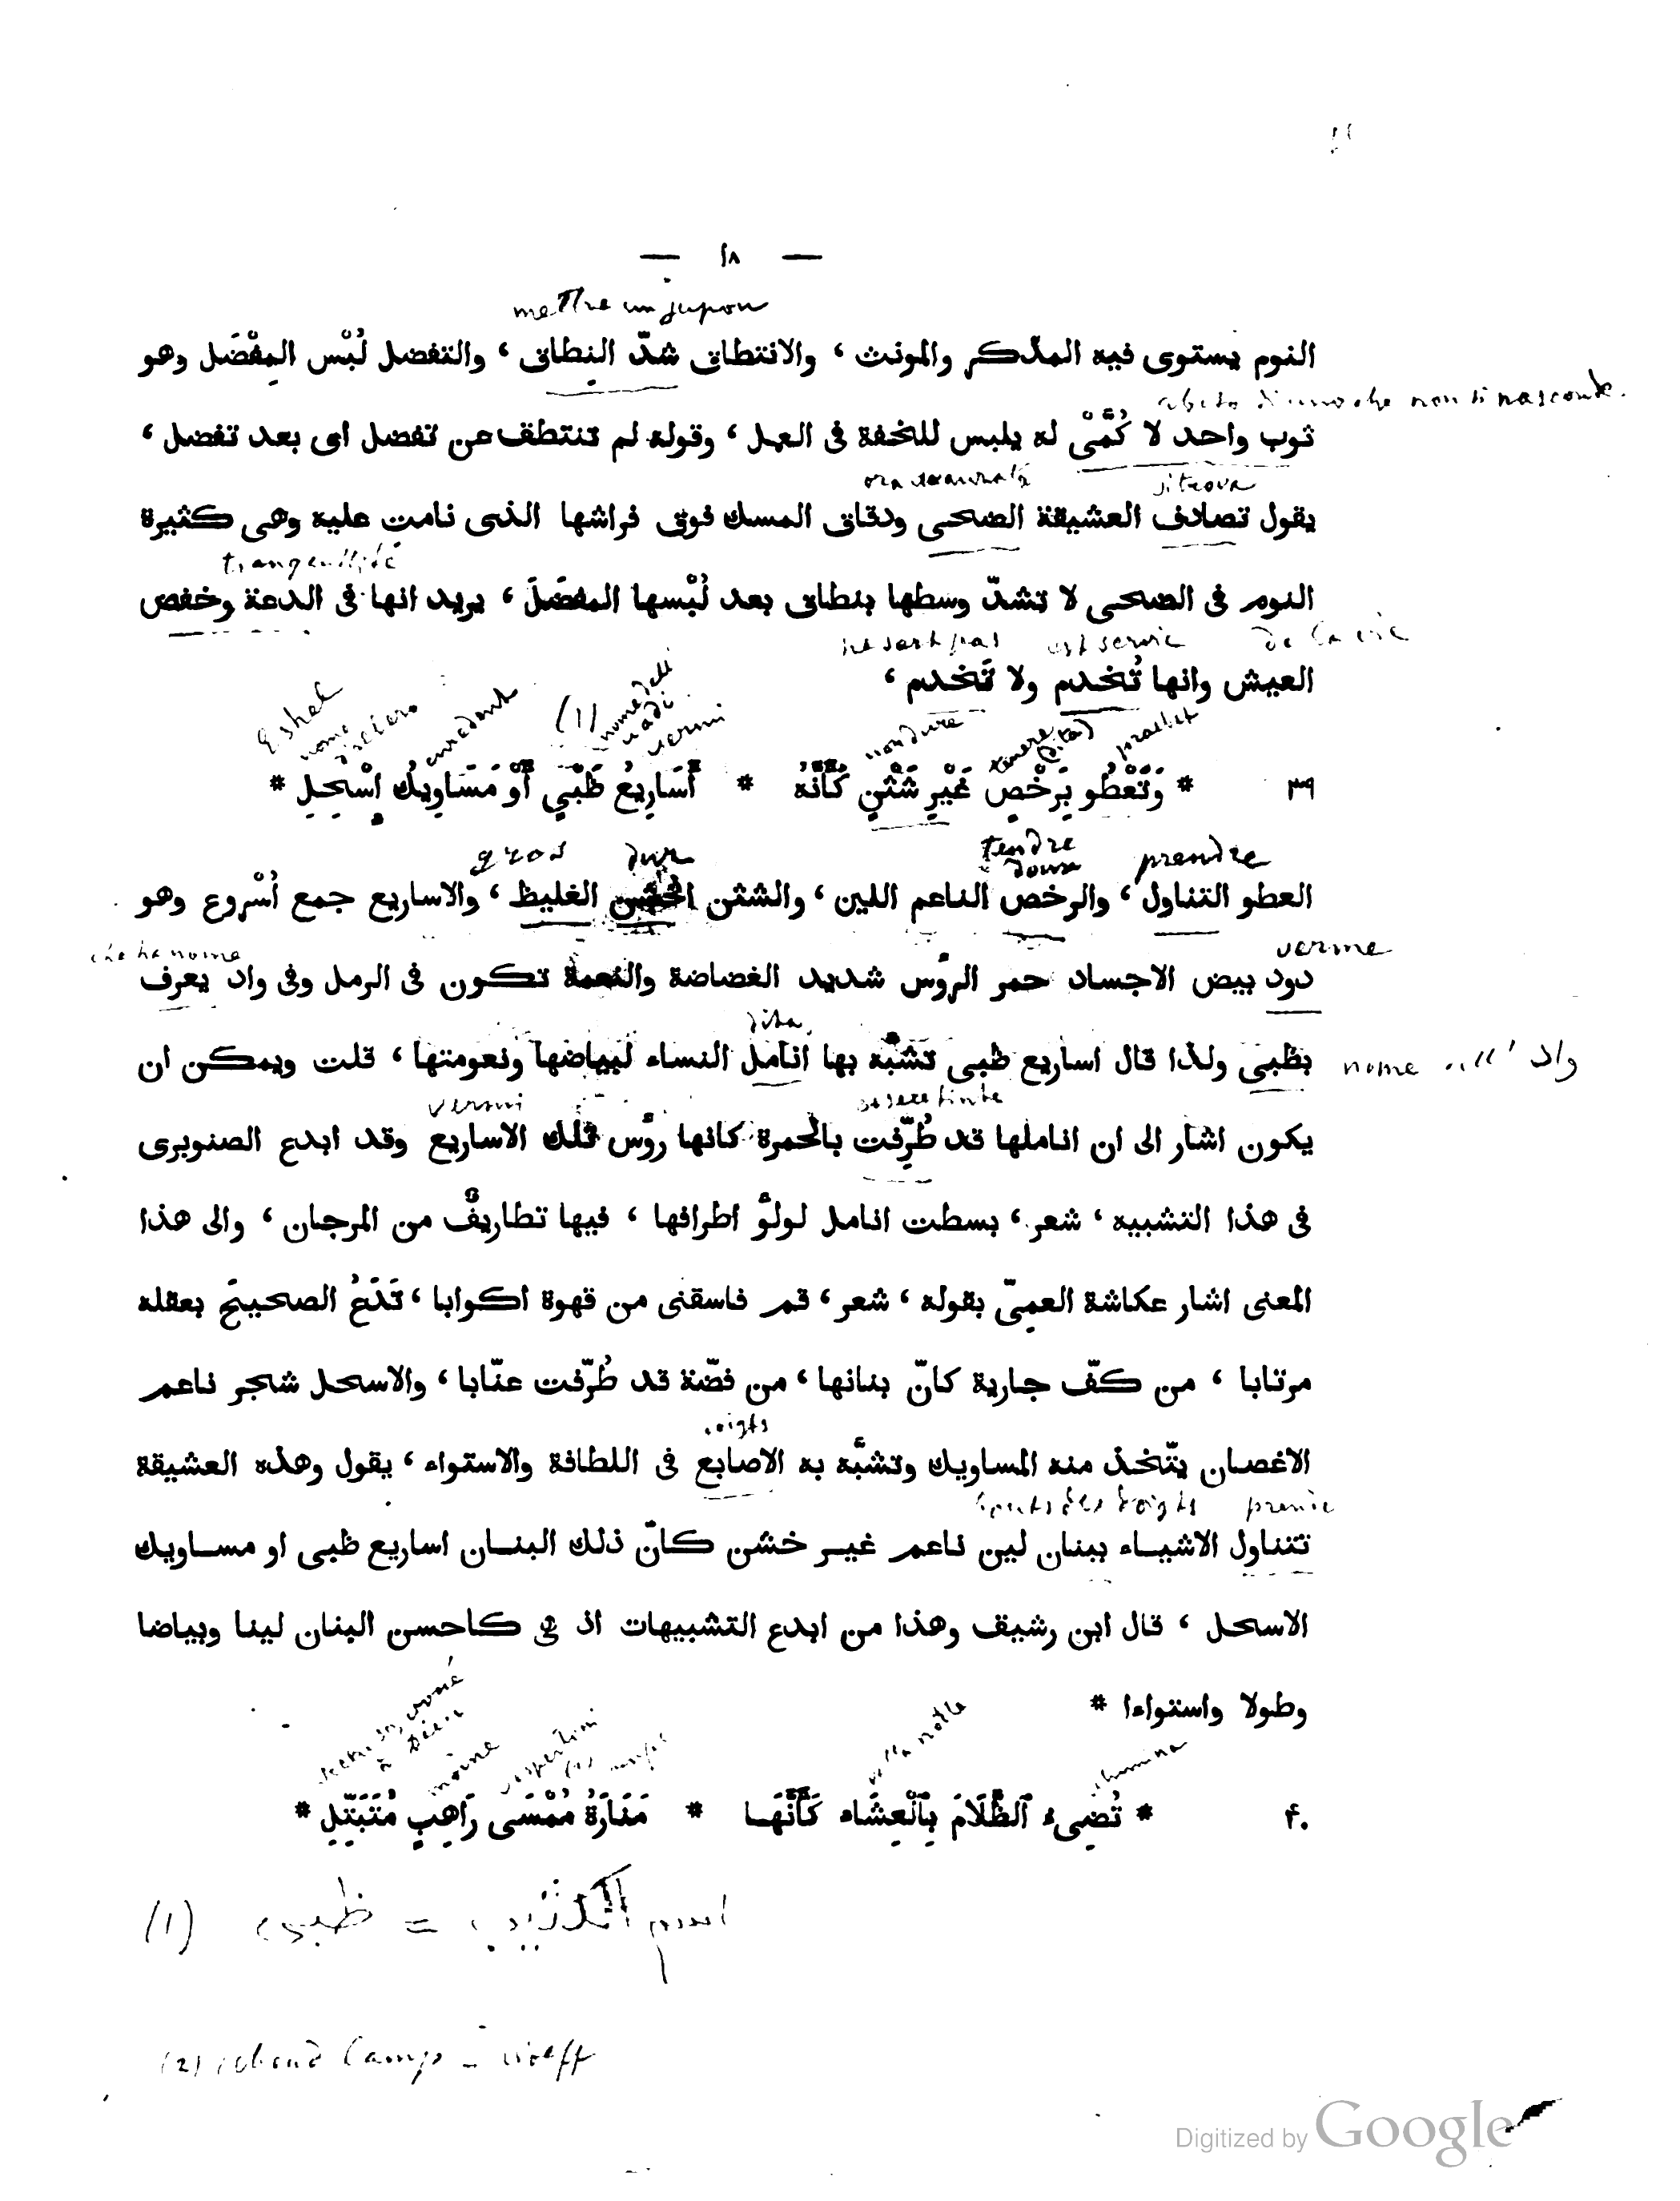 — ١٨ —
mettre un jupon
النوم يستوى فيه المذكر والمونث ، والانتطاق شدّ النِطاق ، والتفضل لُبْس المِفْضَل وهو
che non si nasconde.
ثوب واحد لا كُمَّىْ له يلبس للخفة فى العمل ، وقوله لم تنتطف عن تفضل اى بعد تفضل ،
si trova
يقول تصادف العشيقة الضحى ودقاق المسك فوق فراشها الذى نامت عليه وهى كثيرة
النوم فى الضحى لا تشدّ وسطها بنطاق بعد لُبْسها المفضَلَ ، يريد انها فى الدعة وخفض
ne sert pas est servie de la vie
العيش وانها تُخدم ولا تَخدم ،
Eshel nome (1) nome vermi non dure
٣٩ * وَتَعْطُو بِرَخْصٍ غَيْرِ شَثْنٍ كَأَنَّهُ * أَسَارِيعُ ظَبْيٍ أَوْ مَسَاوِيكُ إِسْحِلِ *
gros dur tendre doux prendre
العطو التناول ، والرخص الناعم اللين ، والشثن الخشن الغليظ ، والاساريع جمع أُسْروع وهو
verme
دود بيض الاجساد حمر الروٌس شديد الغضاضة والنعمة تكون فى الرمل وفى واد يعرف
dita
بظبى ولذا قال اساريع ظبى تشبَّه بها انامل النساء لبياضها ونعومتها ، قلت ويمكن ان
nome واد
vermi
يكون اشار الى ان اناملها قد طُرِّفت بالحمرة كانها روٌس تلك الاساريع وقد ابدع الصنوبرى
فى هذا التشبيه ، شعر ، بسطت انامل لولوٌ اطرافها ، فيها تطاريفٌ من المرجان ، والى هذا
المعنى اشار عكاشة العمِىّ بقوله ، شعر ، قم فاسقنى من قهوة اكوابا ، تَدَعُ الصحيحَ بعقله
مرتابا ، من كفّ جارية كانّ بنانها ، من فضّة قد طُرِّفت عنّابا ، والاسحل شجر ناعم
الاغصان يتّخذ منه المساويك وتشبَّه به الاصابع فى اللطافة والاستواء ، يقول وهذه العشيقة
تتناول الاشياء ببنان لين ناعم غير خشن كانّ ذلك البنان اساريع ظبى او مساويك
الاسحل ، قال ابن رشيف وهذا من ابدع التشبيهات اذ هى كاحسن البنان لينا وبياضا
وطولا واستواءا *
à Dieu moine notte illumina
۴٠ * تُضِىءُ ٱلظَّلَامَ بِٱلْعِشَاء كَأَنَّهَا * مَنَارَةُ مُمْسَى رَاهِبٍ مُتَبَتِّلِ *
(1) ظبى = اسم الكثيب
(2) Camp - Wolff
Digitized by Google